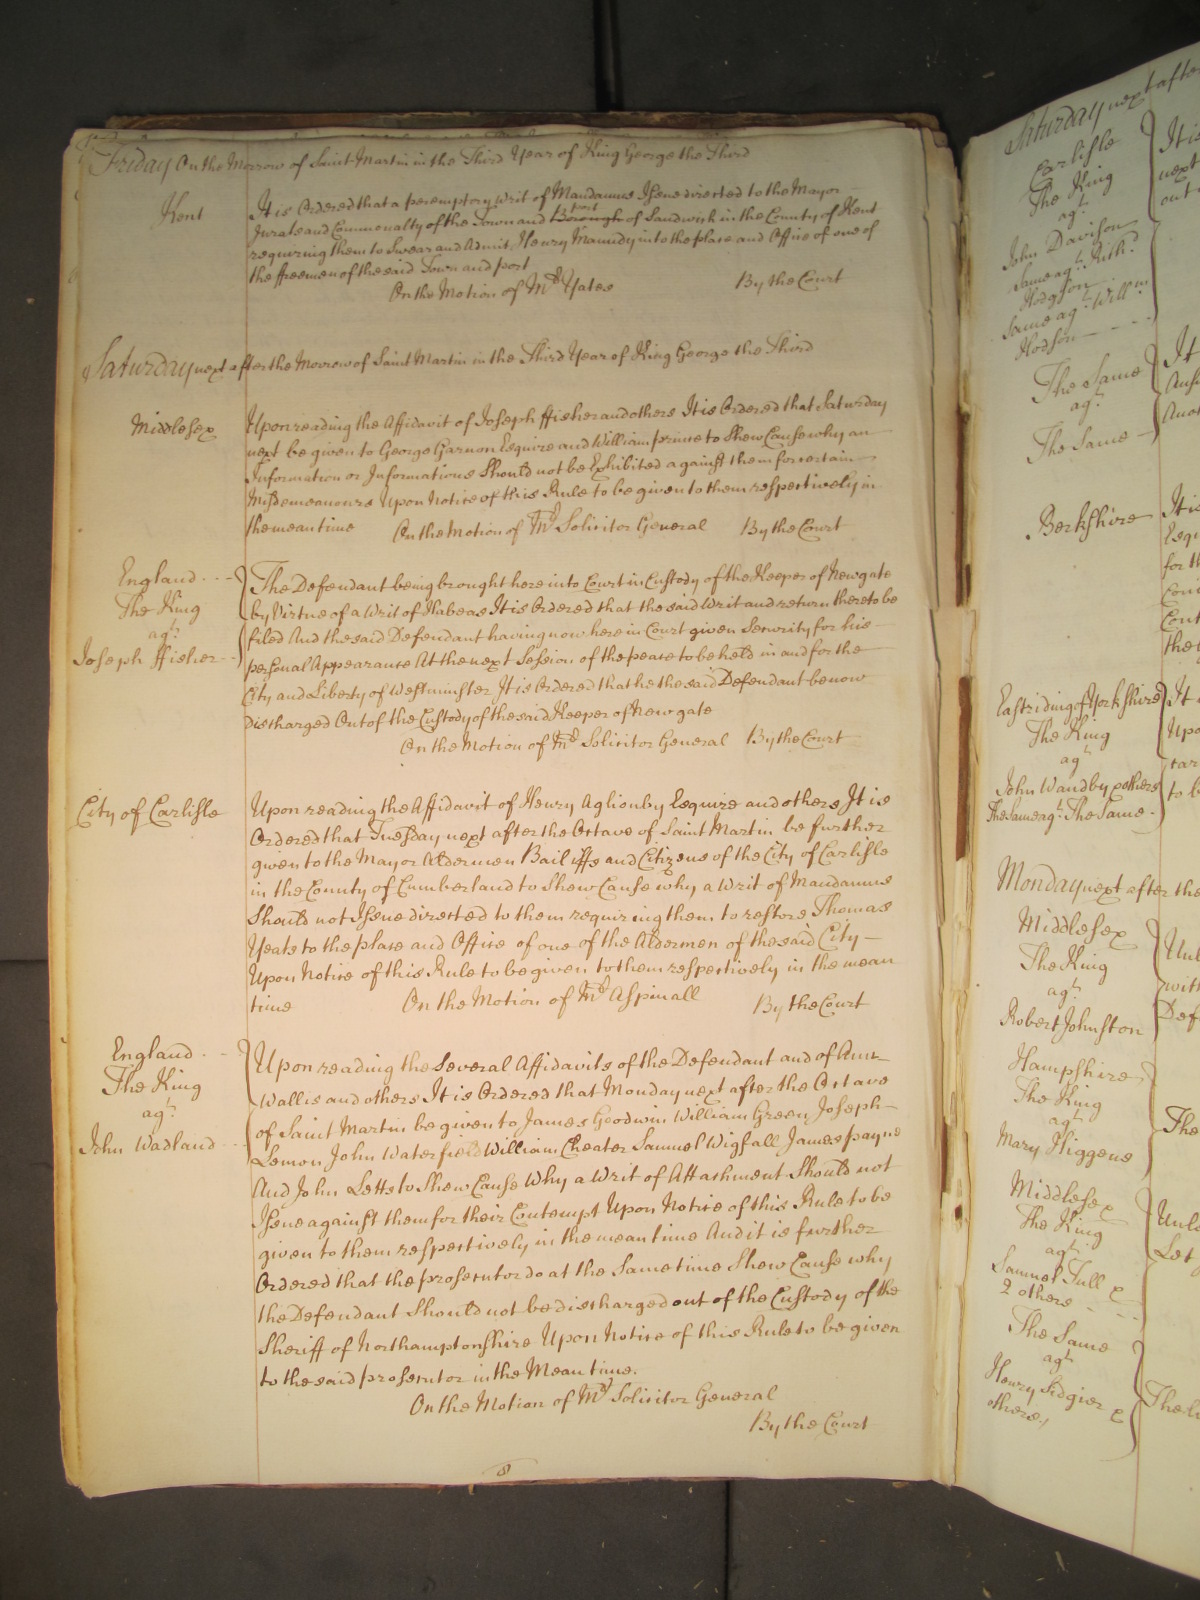 Friday On the Morrow of Saint Martin in the Third Year of King George the Third
Kent
It is Ordered that a peremptory Writ of Mandamus Issue directed to the Mayor
Jurats and Commonalty of the Town and Borough port of Sandwich in the County of Kent
requiring them to Swear and Admit Henry Maundy into the place and Office of one of
the ffreemen of the said Town and port
On the Motion of Mr Yates By the Court
Saturday next after the Morrow of Saint Martin in the Third Year of King George the Third
Middlesex
Upon reading the Affidavit of Joseph ffisher and others It is Ordered that Saturday
next be given to George Garnon Esquire and William prince to Shew Cause why an
Information or Informations Should not be Exhibited against them for certain
Misdemeanours Upon Notice of this Rule to be given to them respectively in
the mean time On the Motion of Mr Solicitor General By the Court
England
The King
agt
Joseph ffisher
The Defendant being brought here into Court in Custody of the Keeper of Newgate
by Virtue of a Writ of Habeas It is Ordered that the said Writ and return thereto be
filed And the said Defendant having now here in Court given Security for his
personal Appearance At the next Session of the peace to be held in and for the
City and Liberty of Westminster It is Ordered that he the said Defendant be now
discharged Out of the Custody of the said Keeper of Newgate
On the Motion of Mr Solicitor General By the Court
City of Carlisle
Upon reading the Affidavit of Henry Aglionby Esquire and others It is
Ordered that Tuesday next after the Octave of Saint Martin be further
given to the Mayor Aldermen Bailiffs and Citizens of the City of Carlisle
in the County of Cumberland to Shew Cause why a Writ of Mandamus
Should not Issue directed to them requiring them to restore Thomas
Yeats to the place and Office of one of the Aldermen of the said City
Upon Notice of this Rule to be given to them respectively in the mean
time On the Motion of Mr Aspinall By the Court
England
The King
agt
John Wadland
Upon reading the Several Affidavits of the Defendant and of Ann
Wallis and others It is Ordered that Monday next after the Octave
of Saint Martin be given to James Goodwin William Green Joseph
Lemon John Waterfield William Cheater Samuel Wigfall James payne
And John Letts to Shew Cause Why a Writ of Attachment Should not
Issue against them for their Contempt Upon Notice of this Rule to be
given to them respectively in the mean time And it is further
Ordered that the prosecutor do at the Same time Shew Cause why
the Defendant Should not be discharged out of the Custody of the
Sheriff of Northamptonshire Upon Notice of this Rule to be given
to the said prosecutor in the Mean time.
On the Motion of Mr Solicitor General
By the Court
Saturday next after
Carlisle
The King
agt
John Davison
Same agt Rich.d
Hodgson
Same agt Will.m
Hodson
The Same
agt
The Same
Berkshire
East riding of Yorkshire
The King
agt
John Wandby & others
The Same agt The Same
Monday next after the
Middlesex
The King
agt
Robert Johnston
Hampshire
The King
agt
Mary Higgens
Middlesex
The King
agt
Samuel Tull &
2 others
The Same
agt
Henry Sidgier &
others